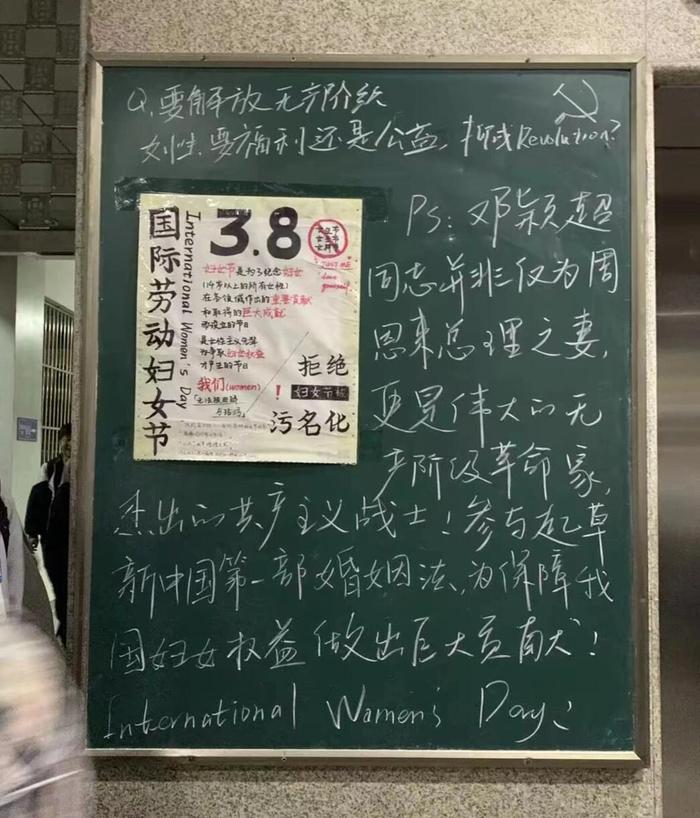 Q.要解放无产阶级
女性.要福利还是公益.抑或Revolution?
Ps:邓颖超
同志并非仅为周
恩来总理之妻,
更是伟大的无
产阶级革命家,
杰出的共产主义战士!参与起草
新中国第一部婚姻法,为保障我
国妇女权益做出巨大贡献!
International Women's Day!
国际劳动妇女节
International Women's Day
3.8
妇女节是为了纪念妇女
(14岁以上的所有女性)
在各领域作出的重要贡献
和取得的巨大成就
而设立的节日
是女性主义先辈
为争取妇女权益
才产生的节日
我们(women)
拒绝
妇女节被
污名化
!